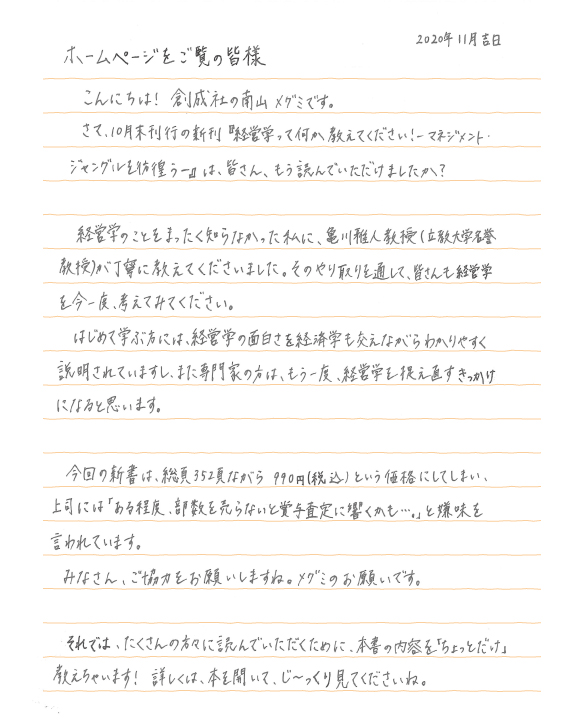 2020年11月吉日
ホームページをご覧の皆様
こんにちは！ 創成社の南山メグミです。
さて、10月末刊行の新刊『経営学って何か教えてください！－マネジメント・
ジャングルを彷徨う－』は、皆さん、もう読んでいただけましたか？
経営学のことをまったく知らなかった私に、亀川雅人教授（立教大学名誉
教授）が丁寧に教えてくださいました。そのやり取りを通して、皆さんも経営学
を今一度、考えてみてください。
はじめて学ぶ方には、経営学の面白さを経済学も交えながらわかりやすく
説明されていますし、また専門家の方は、もう一度、経営学を捉え直すきっかけ
になると思います。
今回の新書は、総頁352頁ながら 990円（税込）という価格にしてしまい、
上司には「ある程度、部数を売らないと賞与査定に響くかも…。」と嫌味を
言われています。
みなさん、ご協力をお願いしますね。メグミのお願いです。
それでは、たくさんの方々に読んでいただくために、本書の内容を「ちょっとだけ」
教えちゃいます！ 詳しくは、本を開いて、じ～っくり見てくださいね。